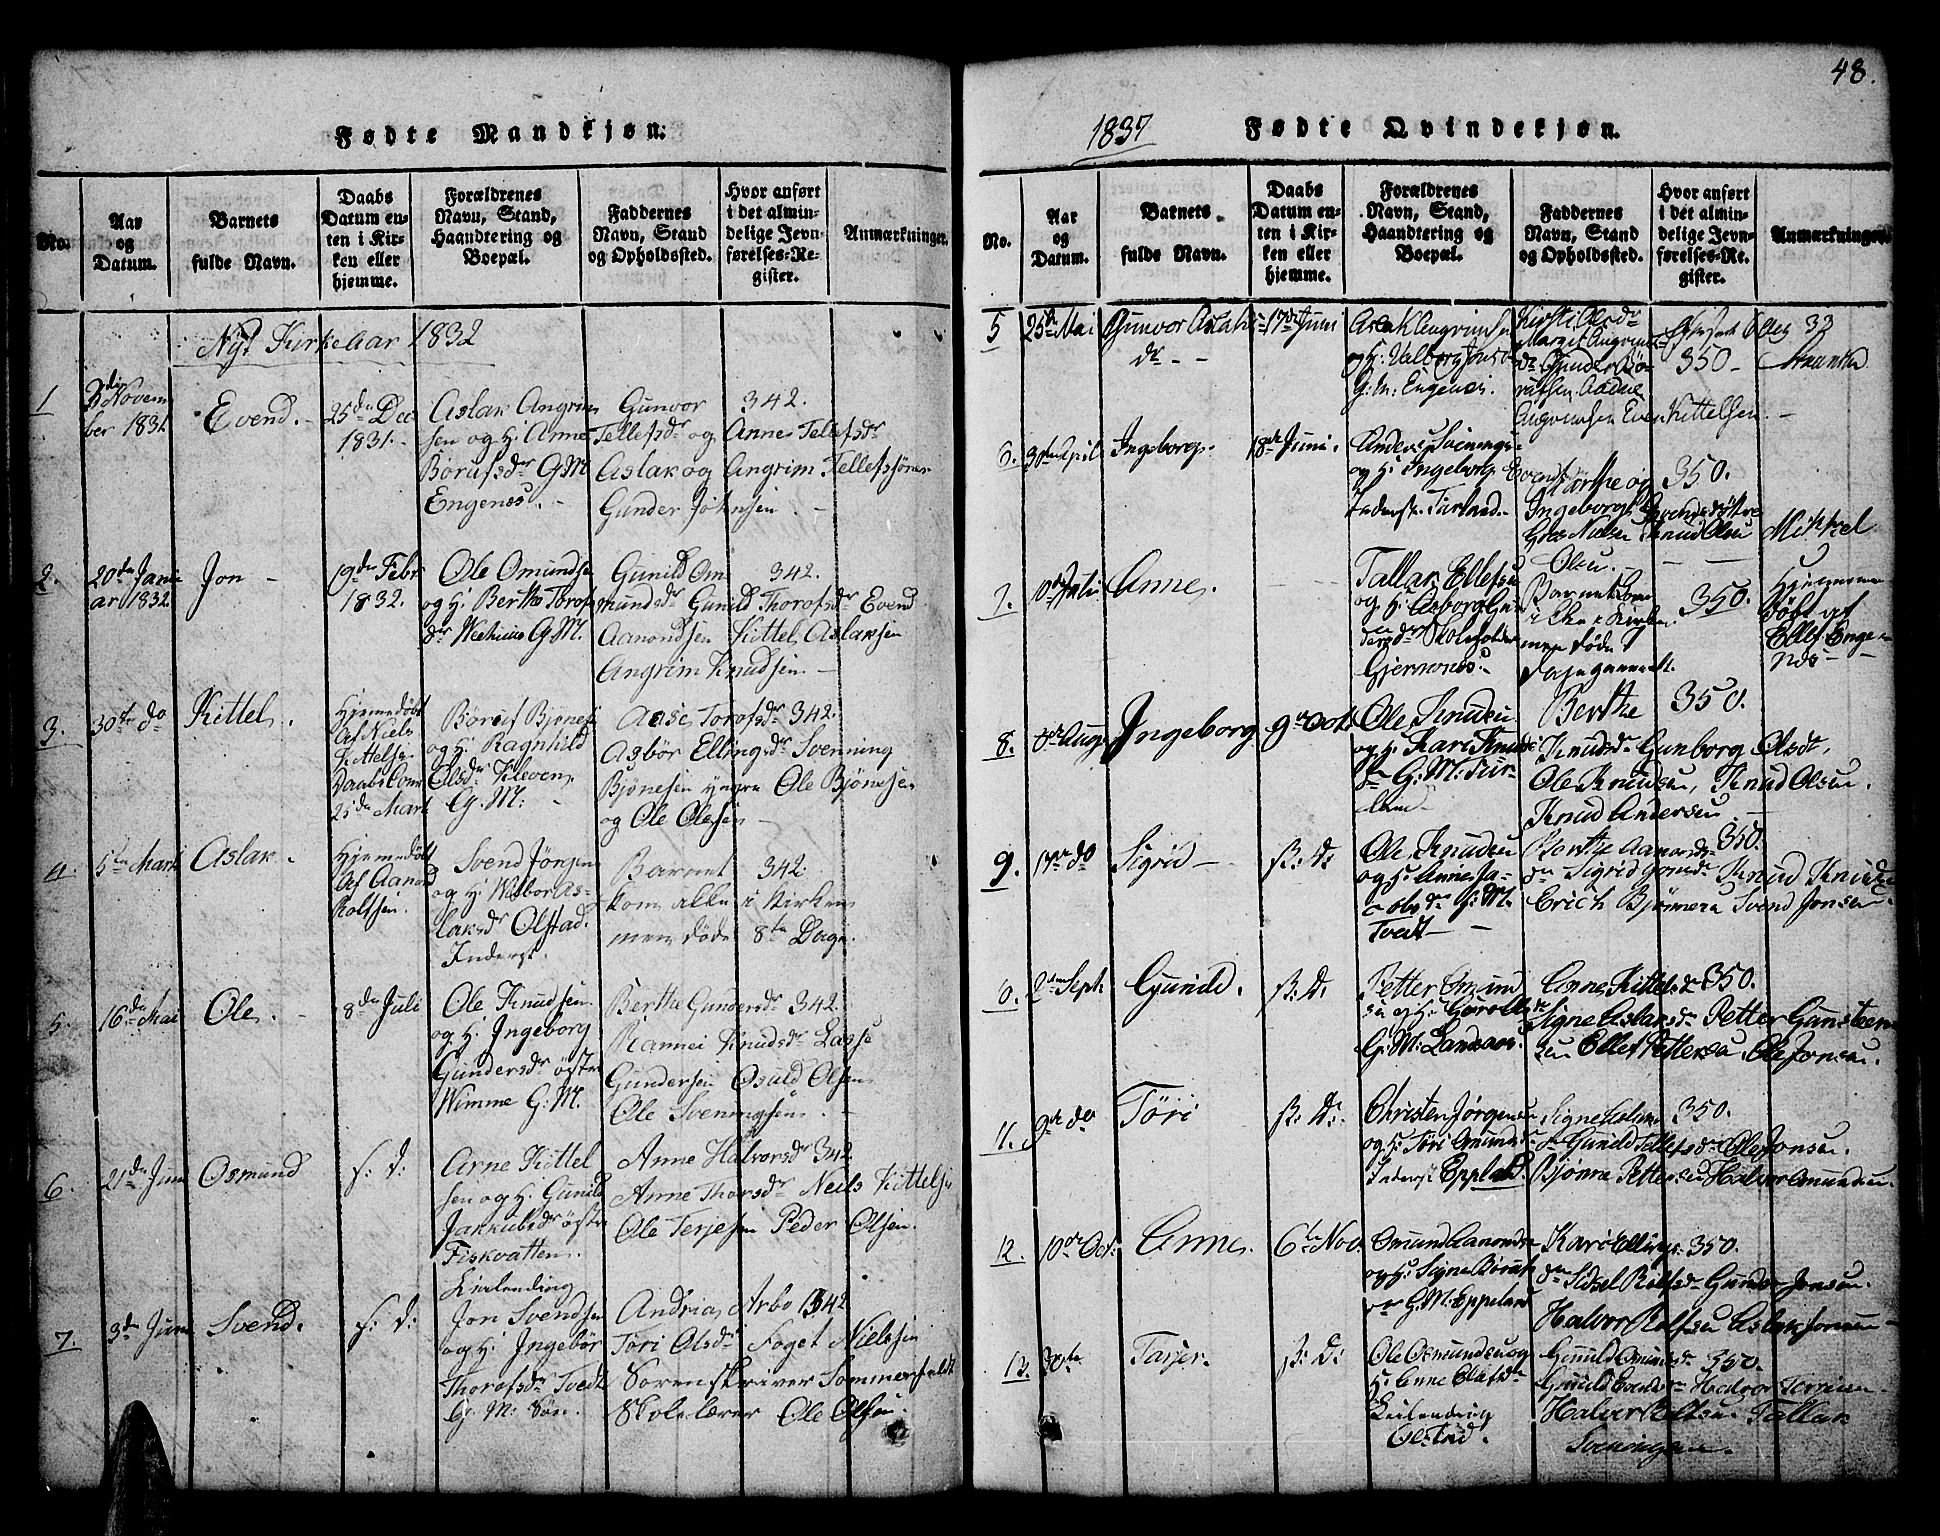 48.
Fødte Mandkjøn.
No.
Aar
og
Datum.
Barnets
fulde Navn.
Daabs
Datum en-
ten i Kir-
ken eller
hjemme.
Forældrenes
Navn, Stand,
Haandtering og
Boepæl.
Faddernes
Navn, Stand
og Opholdssted.
Hvor anført
i det almin-
delige Jevn-
førelses-Re-
gister.
Anmærkninger.
Nyt Kirkeaar 1832
1
Novem
ber 1831.
Evend.
25de Dec
1831.
Aslak Angrim
sen og H. Anne
Børufsdr G.M.
Engenes.
Gunvor 342.
Tellefsdr og Anne Tellefsdr
Aslak og Angrim Tellefssøner
Gunder Johnsen.
2.
20de Janu
ar 1832.
Jon
19de Febr
1832.
Ole Omundse
og H. Berthe Torofs
dr G.M.
Gunild Om 342.
mundsdr Gunild Thorofsdr Evend
Aanondsen Kittel Aslaksen
Angrim Knudsen
3.
30te do
Kittel.
Hjemmedøbt
af Niels
Kittelsen
Daabs Com
25de Mart
Børuf Bjønse
og H. Ragnhild
Olsdr Kleven
G. M:
Aase Torofsdr 342.
Asbør Ellingsdr Svenning
Bjønesen yngre Ole Bjønesen
og Ole Olesen
4.
5te Mart
Aslak.
Hjemmedøbt
af Aanond
Rolfsen.
Svend Jørgen
og H. Walbor As-
laksdr Olstad.
Inderst.
Barnet 342
kom ikke i Kirken
men døde 8te Dage.
5.
16de Mai
Ole.
8de Juli
Ole Knudsen
og H. Ingeborg
Gundersdr østre
Wimme G. M.
Berthe Gundersdr 342.
Rannei Knudsdr Lasse
Gundersen Osuld Olsen
Ole Sveningsen.
6.
21de Juni
Osmund
s: d:
Arne Kittel
sen og H. Gunild
Jakkubsdr østre
Fiskvatten.
Anne Halvorsdr 342
Anne Thorsdr Neils Kittelse
Ole Terjesen Peder Olsen.
7
3de Juni
Svend.
s: d:
Leilending
Jon Svendsen
og H. Ingebør
Thorofsdr Tvedt
G. M: Søn.
Andrias Arbo 342
Tøri Olsdr Foget Nielssen
Sorenskriver Sommerfeldt
Skolelærer Ole Olsen.
1837
Fødte Qvindekjøn.
No.
Aar
og
Datum.
Barnets
fulde Navn.
Daabs
Datum en-
ten i Kir-
ken eller
hjemme.
Forældrenes
Navn, Stand,
Haandtering og
Boepæl.
Faddernes
Navn, Stand
og Opholdssted.
Hvor anført
i det almin-
delige Jevn-
førelses-Re-
gister.
Anmærkninger.
5
25de Mai
Gunvor Aslaks
dr
17de Juni
Aslak Angrimsen
og H. Valborg Jons
G. M. Engenes.
Kirsti Olsdr
Margit Angrims
dr Gunder Bø-
rufsen Aadne
Angrimsen Even Kittelsen.
350
6.
30te April
Ingeborg.
18de Juni.
Anders Svenings
og H. Ingeborg Evends
Inderst. Turland.
Børthe og 350.
Ingeborg
Nielsen Knud Olsen
Mikkel
Olsen.
7.
10de Juli
Anne.
Tallak Ellefsen
og H. Asborg Gun
dersdr Skoleholder
Gjernenes.
Barnet kom
i Kirken
men døde
350.
Hjemme
døbt af
Ellef Enge-
næs
8.
Aug
Ingeborg
9de Oct.
Ole Knudsen
og H. Kari Knuds
dr G. M: Tur-
land
Berthe 350.
Knudsdr Gunborg Olsdt,
Ole Knudsen, Knud Olsen.
Knud Andersen
9.
17de do
Sigrid
s: d:
Ole Knudsen
og H. Anne Ja-
cobsdr G. M.
Tvedt
Berthe Aanonds 350.
dr Sigrid dr Knud Knudsen
Erich Bjønnesen Svend Jonsen.
10.
2den Sept.
Gunild.
s: d.
Petter Omund
sen og H. Gurolle
G. M: Landaas.
Anne Kittelsdr 350.
Signe Aslaksdr Petter Gunsteen
sen Ellef Pettersen. Ole Jonsen.
11.
9de do
Töri
s: d:
Christen Jørgensen
og H. Tøri Omunds
Inderst Eppland.
Signe 350.
dr Gunild Tellefsdr Ole Jonsen.
Bjønne Pettersen Halvor Omundsen.
12.
10de Oct.
Anne.
6te Nov.
Omund Aanondsen
og H. Signe Børufs
dr G. M. Eppeland
Kari Ellings 350.
dr Sidsel Rolfsdr Gunder Jonsen.
Halvor Rolfsen Aslak Jonsen
13.
30te
Tarjer.
s: d:
Ole Osmundsen og
H. Anne Olafsdr
Leilending
Olstad.
Gunild Omundsdr 350.
Gunild dr Halvor
Halvor Rolfsen. Tallak
Sveningsen.